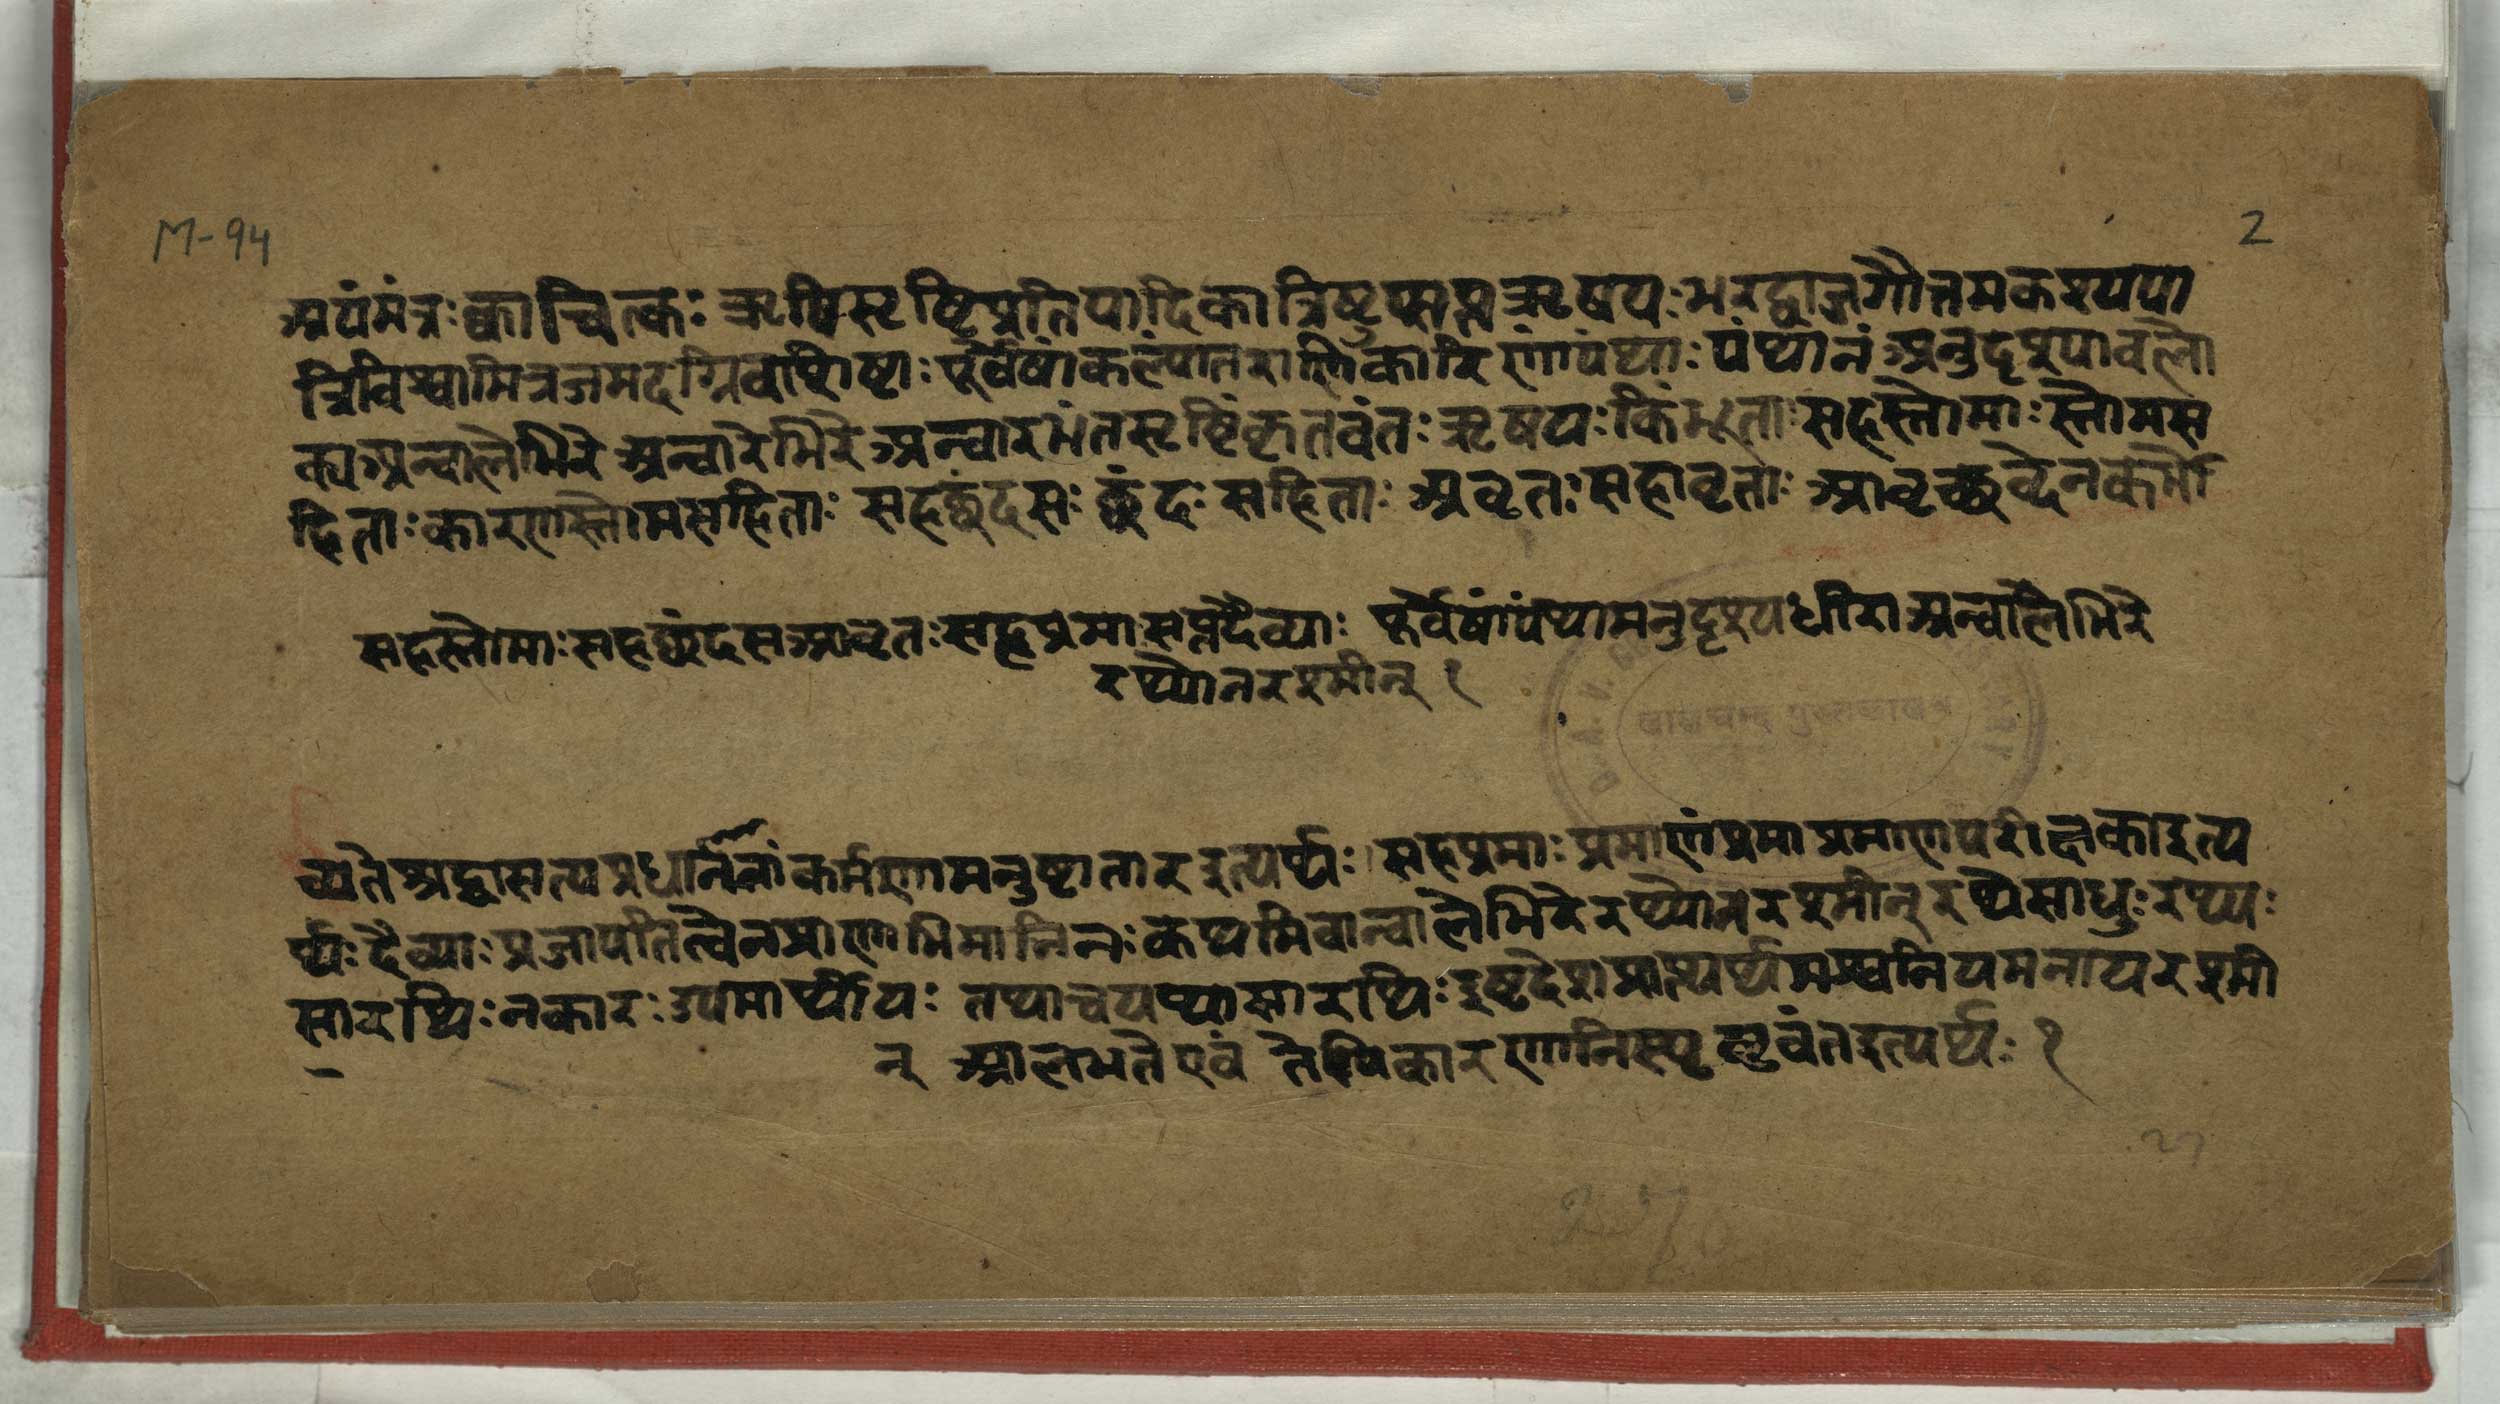 M-94
2
अयंमंत्रः क्वाचित्कः ऋषिसृष्टिप्रतिपादिका त्रिष्टुप्सप्त ऋषयः भरद्वाजगौतमकश्यपा
त्रिविश्वामित्रजमदग्निवशिष्टाः पूर्वेषांकल्पांतरा कारिणांपंथाः पंथानं अनुदृश्यावलो
क्यअन्वालेभिरे अन्वारेभिरे अन्वारभंतसृष्टिंकृतवंतः ऋषयः किंभूताः सहस्तोमाः स्तोमस
हिताः कारणस्तोमसहिताः सहछंदसः छंदः सहिताः अवृतः सहावृताः आवृच्छब्देनकर्मो
सहस्तोमाः सहछंदसआवृतः सहप्रमाः सप्तदैव्याः पूर्वेषांपंथामनुदृश्यधीरा अन्वालेभिरे
रथ्योनरश्मीन् १
च्यते श्रद्धासत्यप्रधानानां कर्मणामनुष्टातारइत्यर्थः सहप्रमाः प्रमाणंप्रमा प्रमाणपरीक्षकाइत्य
र्थः दैव्याः प्रजापतित्वेनप्राणाभिमानिनः कथमिवान्वालेभिरे रथ्योनरश्मीन् रथेसाधुः रथ्यः
सारथिः नकारः उपमार्थीयः तथाचयथासारथिः इष्टदेशप्राप्त्यर्थमश्वनियमनायरश्मी
न् आलभते एवं तेपिकारणानिस्पृ वंतइत्यर्थः १
लालचन्द पुस्तकालय